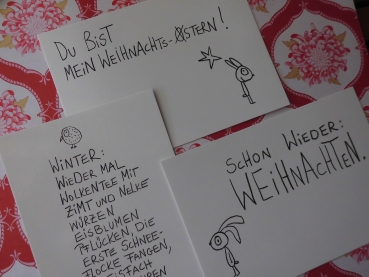 DU BIST
MEIN WEIHNACHTS-STERN!
WINTER:
WIEDER MAL
WOLKENTEE MIT
ZIMT UND NELKE
WÜRZEN
EISBLUMEN
PFLÜCKEN, DIE
ERSTE SCHNEE-
FLOCKE FANGEN,
EINFACH
SCHON WIEDER:
WEIHNACHTEN.